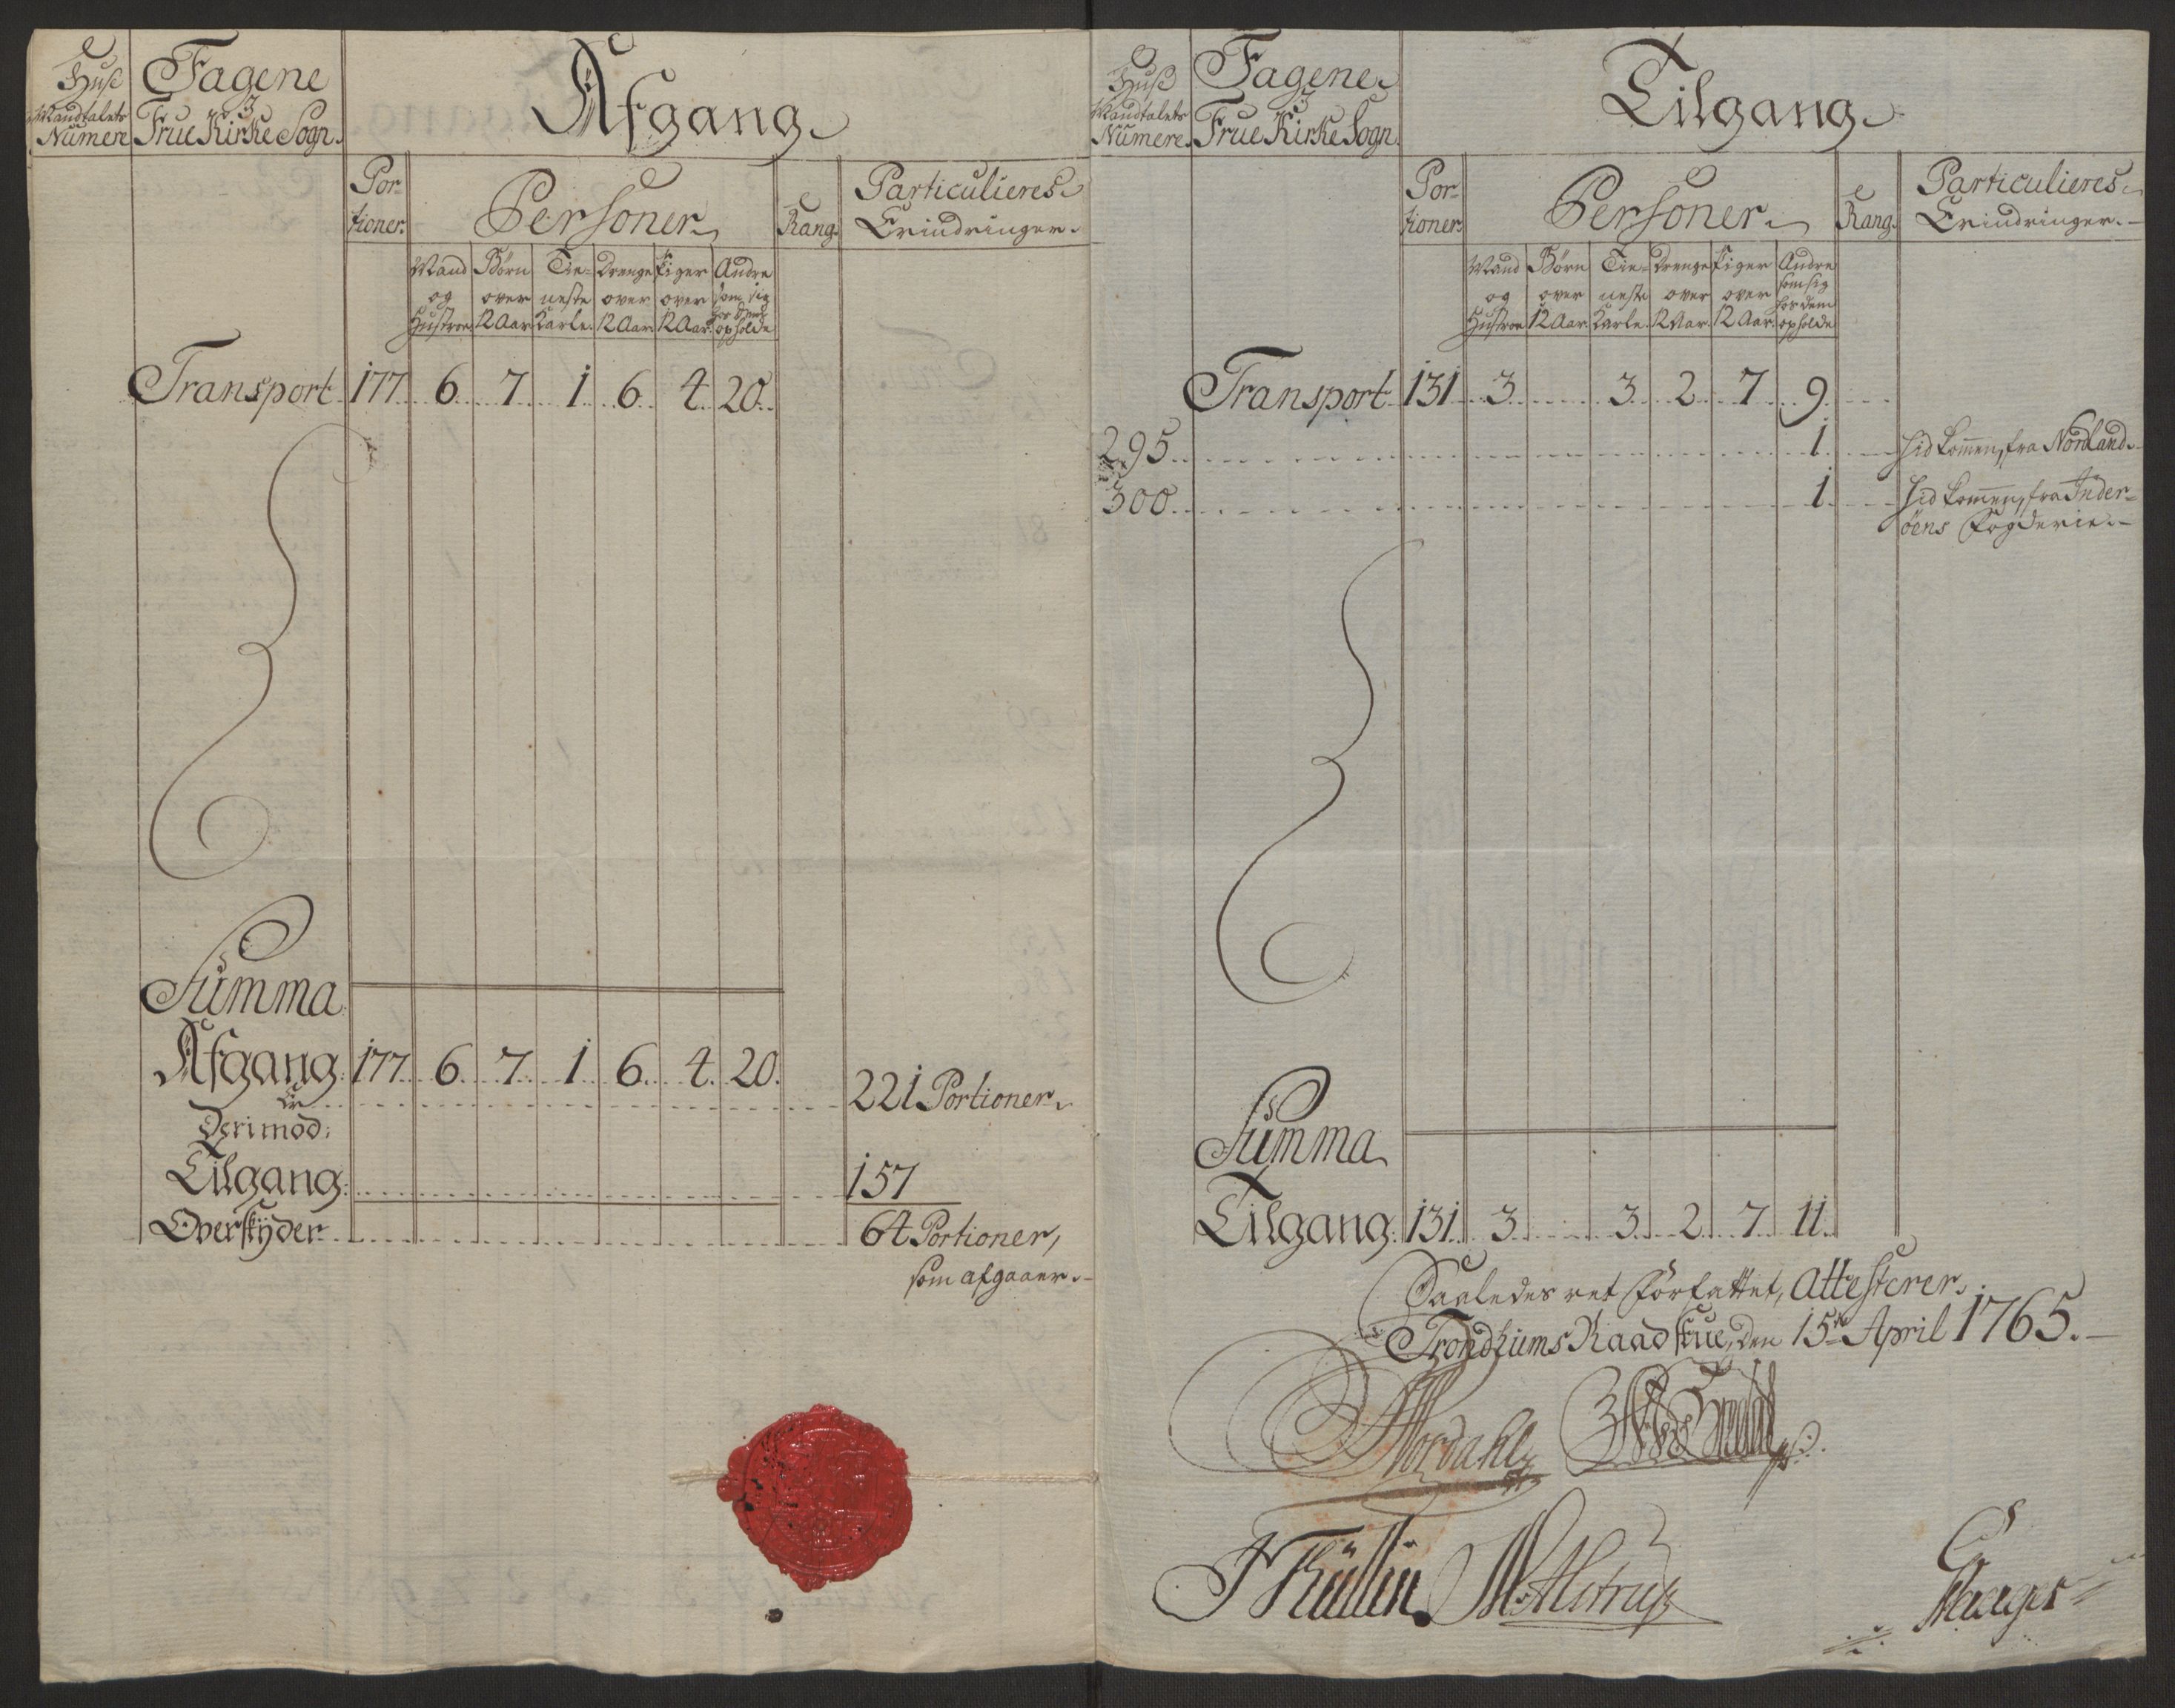 Huse Mandtalets Numere
Fagene i Frue Kirke Sogn.
Afgang
Portioner.
Personer
Rang.
Particulieres Erindringer.
Mand og Hustroe
Børn over 12 Aar
Tieneste Karle.
Drenge over 12 Aar.
Piger over 12 Aar.
Andre som sig hos dem opholde
Transport 177. 6. 7. 1. 6. 4. 20.
Summa
Afgang 177. 6. 7. 1. 6. 4. 20.
Er 221 Portioner.
Derimod:
Tilgang: 157
Overskyder 64 Portioner,
som afgaaer.
Huse Mandtalets Numere.
Fagene i Frue Kirke Sogn.
Tilgang
Portioner.
Personer.
Rang.
Particulieres Erindringer.
Mand og Hustroe
Børn over 12 Aar.
Tieneste Karle.
Drenge over 12 Aar.
Piger over 12 Aar.
Andre som sig hos dem opholde
Transport 131. 3. 3. 2. 7. 9.
295. 1. hid kommen, fra Nordland.
300. 1. hid kommen, fra Inder-
öens Fogderie.
Summa
Tilgang: 131. 3. 3. 2. 7. 11.
Saaledes ret forfattet, Attesterer.
Trondhiems Raadstue, den 15de April 1765.
Hordahl